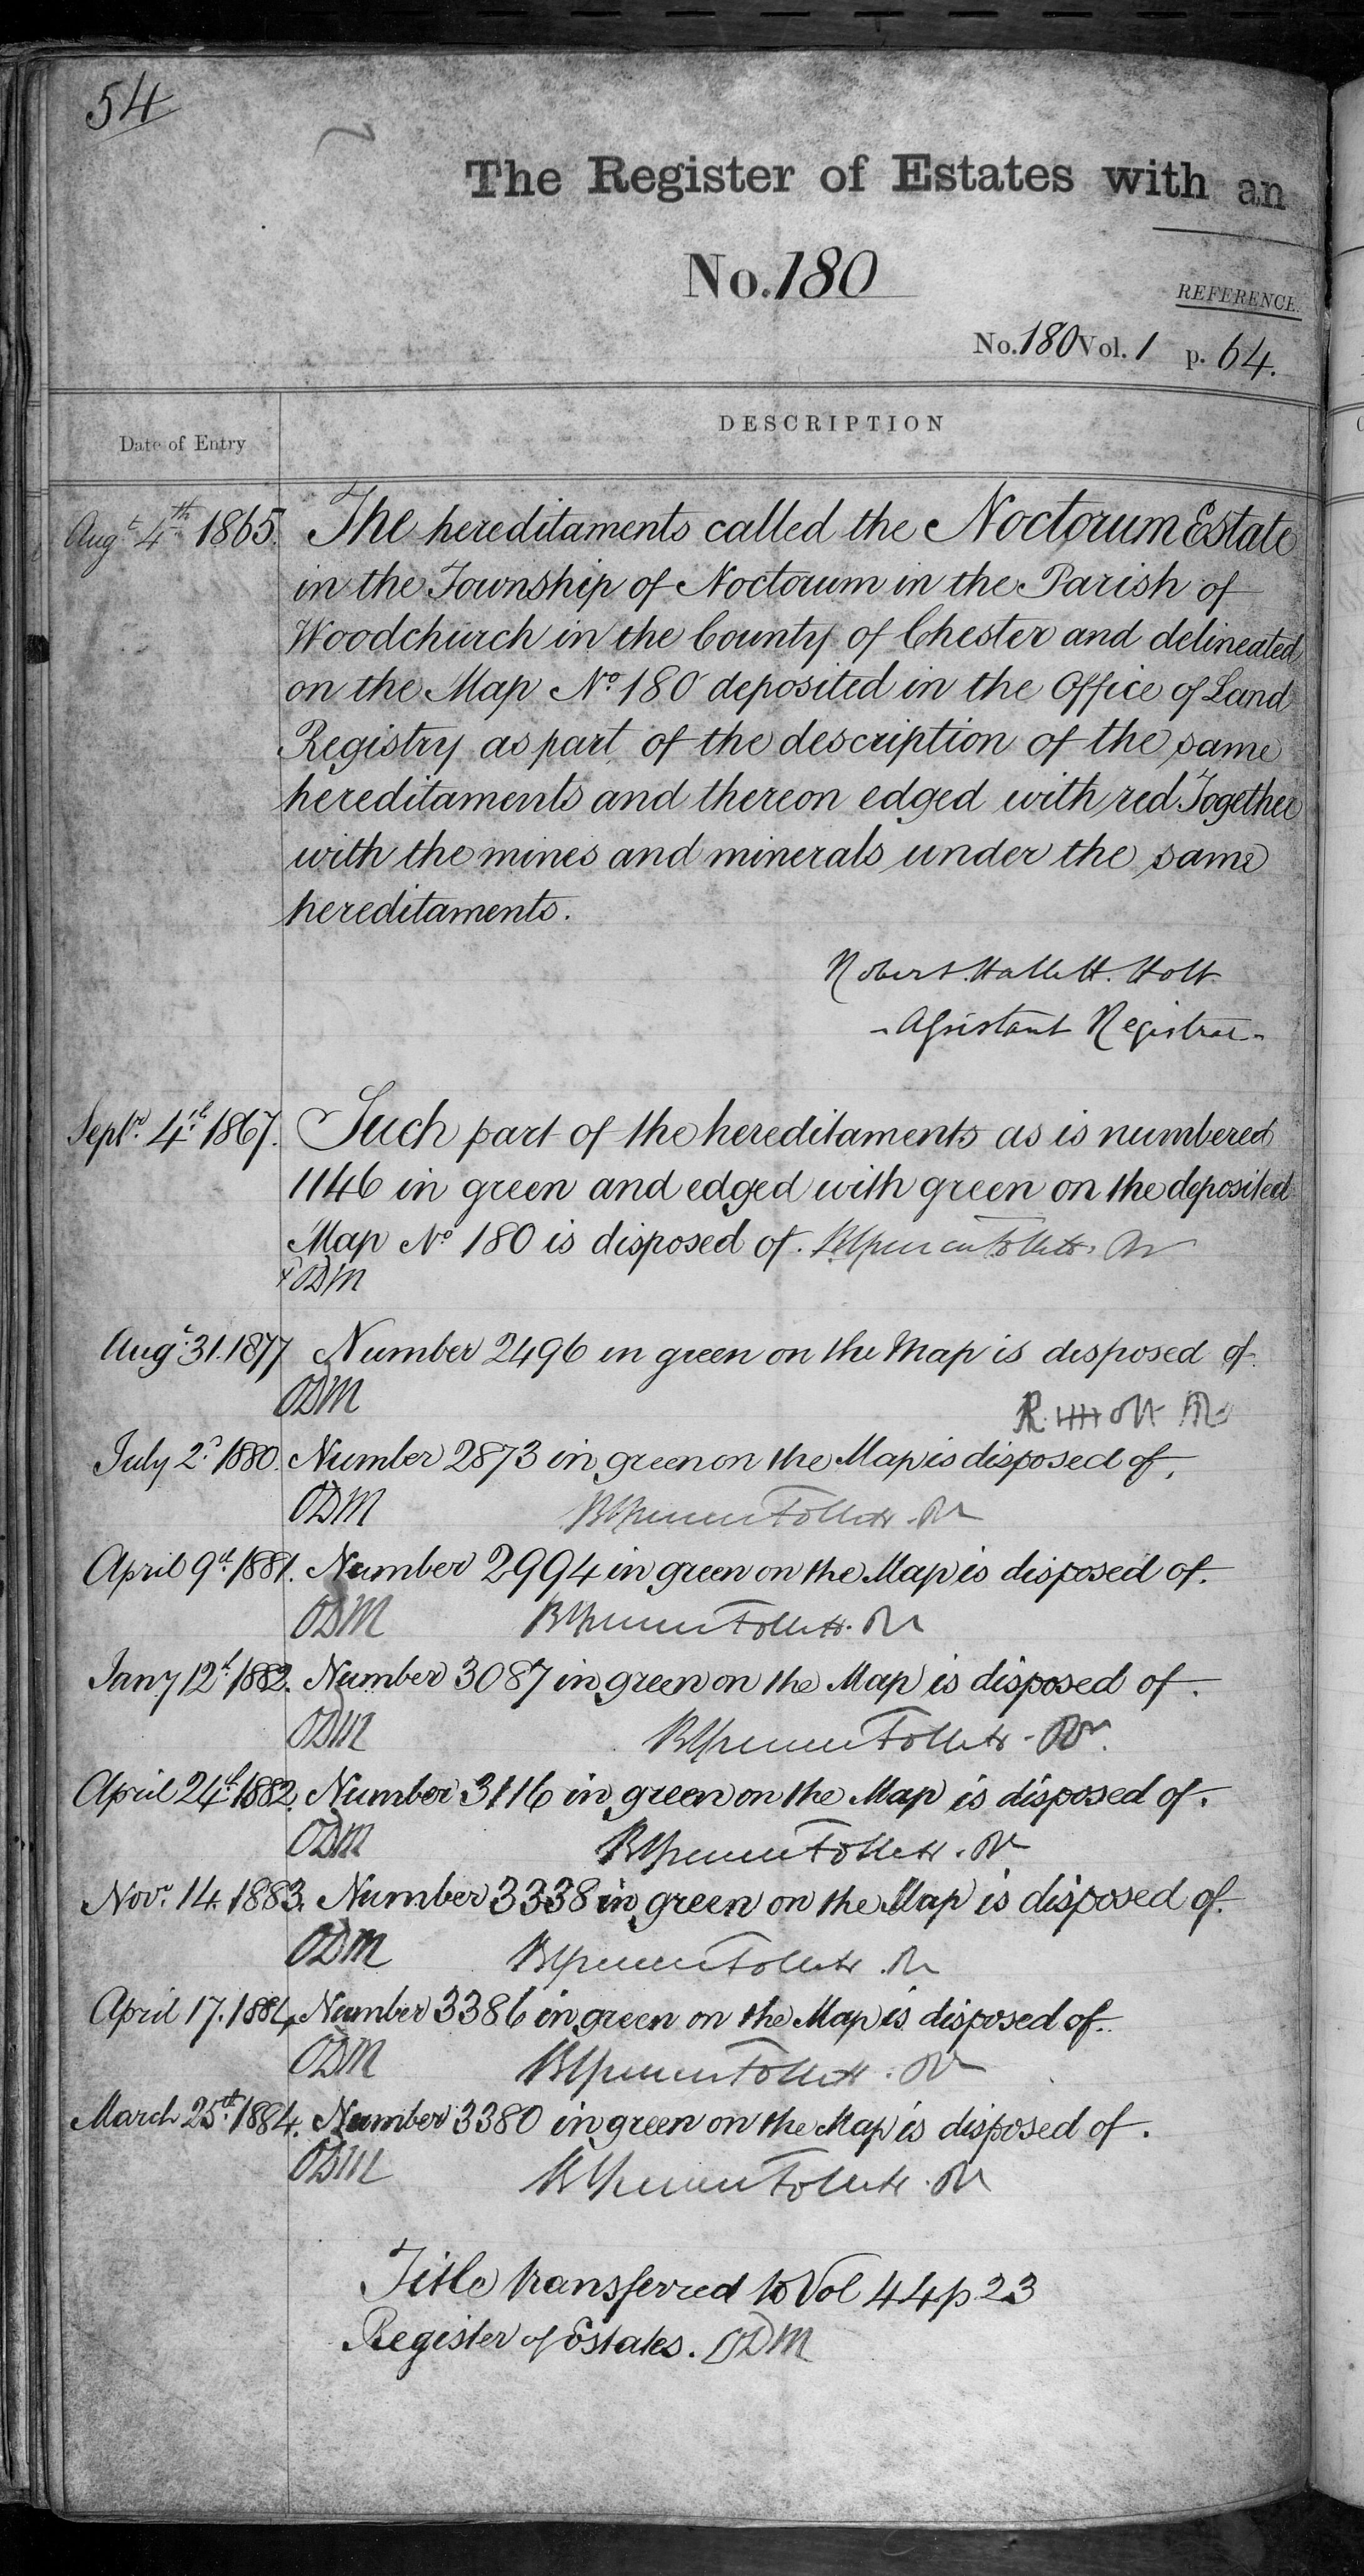 54
The Register of Estates with an
No. 180
REFERENCE.
No. 180 Vol. 1 p. 64.
Date of Entry
DESCRIPTION
Augt. 4th 1865. The hereditaments called the Noctorum Estate
in the Township of Noctorum in the Parish of
Woodchurch in the County of Chester and delineated
on the Map No. 180 deposited in the Office of Land
Registry as part of the description of the same
hereditaments and thereon edged with red Together
with the mines and minerals under the same
hereditaments.
Robert Hallett Holt
- Assistant Registrar -
Septr. 4th 1867. Such part of the hereditaments as is numbered
1146 in green and edged with green on the deposited
Map No 180 is disposed of. Follett
ODM
Augt. 31. 1877 Number 2496 in green on the Map is disposed of.
ODM
R. HHolt
July 2d. 1880. Number 2873 in green on the Map is disposed of.
ODM Follett
April 9th 1881. Number 2994 in green on the Map is disposed of.
ODM Follett
Jany 12th 1882. Number 3087 in green on the Map is disposed of.
ODM Follett
April 24th 1882. Number 3116 in green on the Map is disposed of.
ODM Follett
Novr. 14. 1883. Number 3338 in green on the Map is disposed of.
ODM Follett
April 17. 1884. Number 3386 in green on the Map is disposed of.
ODM Follett
March 25th. 1884. Number 3380 in green on the Map is disposed of.
ODM Follett
Title transferred to Vol 44 p 23
Register of Estates. ODM